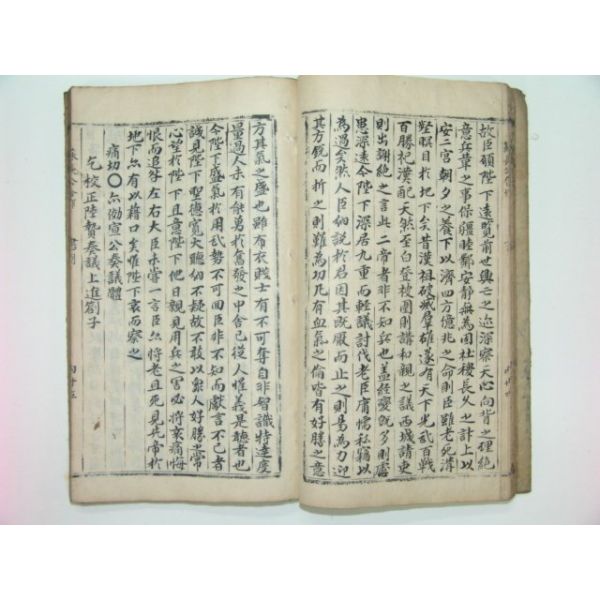 故臣願陛下遠覽前世興亡之迹深察天心向背之理絶
意兵革之事保疆睦鄰安靜無為固社稷長久之計上以
安二宮朝夕之養下以濟四方億兆之命則臣雖老死溝
壑瞑目於地下矣昔漢祖破滅群雄遂有天下光武百戰
百勝祀漢配天然至白登被圍則講和親之議西域請吏
則出謝絶之言此二帝者非不知兵也盖經變既多則慮
患深遠今陛下深居九重而輕議討伐老臣庸懦私竊以
為過矣然人臣納說於君因其既厭而止之則易為力迎
其方銳而折之則難為功凡有血氣之倫皆有好勝之意
方其氣之盛也雖布衣賤士有不可奪自非智識特達度
量過人未有能勇於奮發之中舍己從人惟義是聽者也
今陛下盛氣於用武勢不可回臣非不知而獻言不已者
誠見陛下聖德寬大聽納不疑故不敢以衆人好勝之常
心望於陛下且意陛下他日親見用兵之害必將哀痛悔
恨而追咎左右大臣未嘗一言臣亦將老且死見先帝於
地下亦有以藉口矣惟陛下哀而察之
痛切〇亦倣宣公奏議體
乞校正陸贄奏議上進劄子